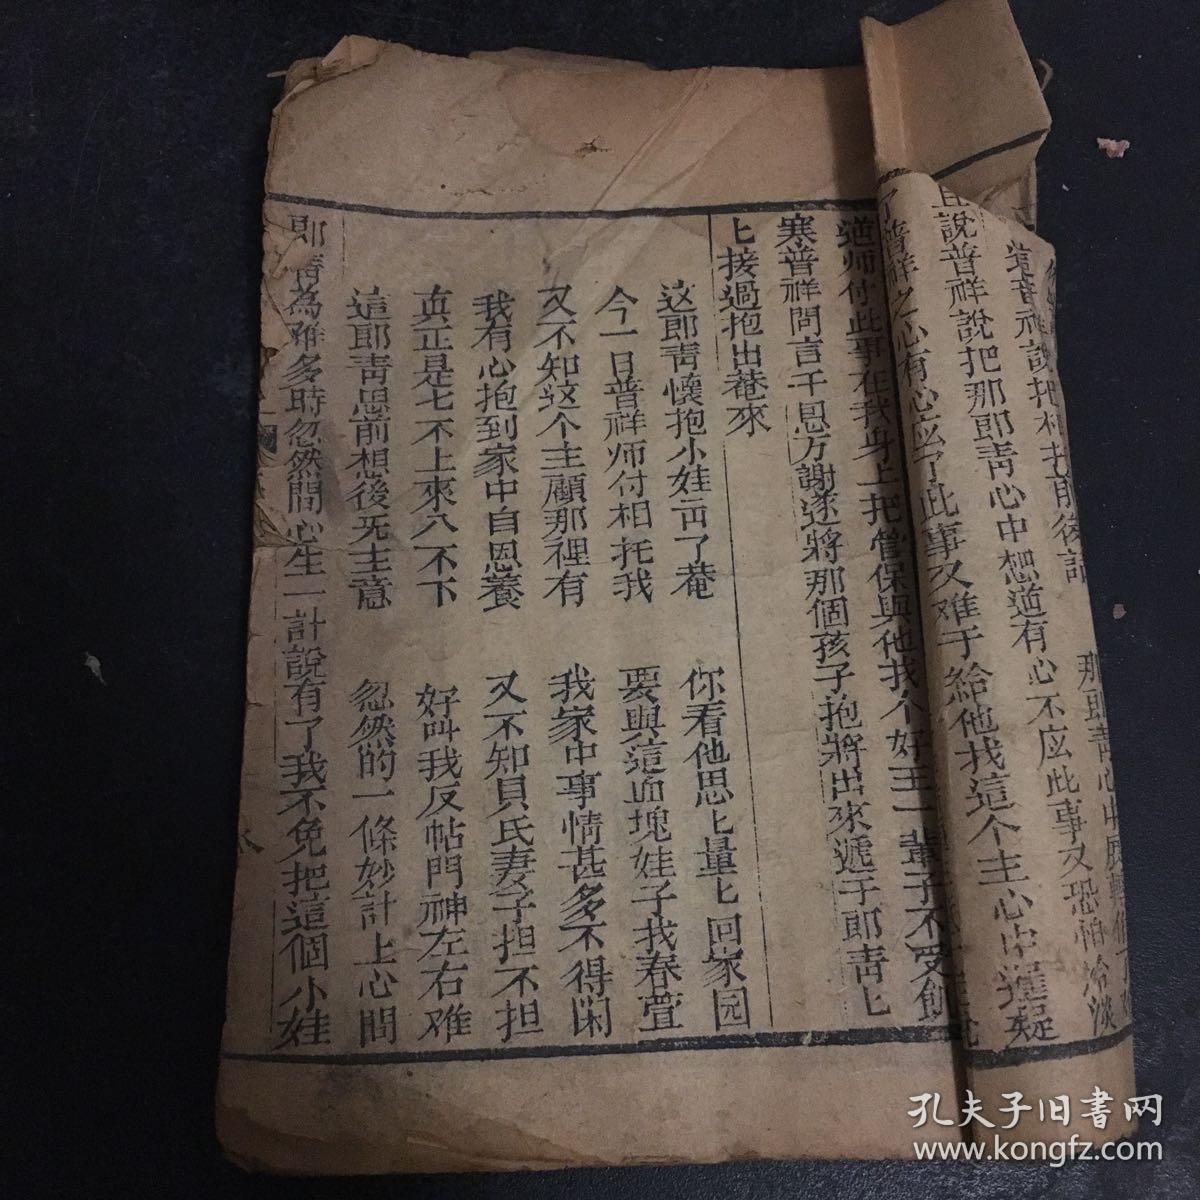 那郎青心中
這普祥說把
且說普祥說把那郎青心中想道有心不应此事又恐怕冷淡
了普祥之心有心应了此事又难于給他找這个主心中遲疑
道师付此事在我身上把管保與他找个好主一輩子不受飢
寒普祥問言千恩万謝遂將那個孩子抱將出來遞于郎青匕
匕接過抱出菴來
这郎青懷抱小娃而了菴 你看他思匕量匕回家园
今一日普祥师付相托我 要與這血塊娃子找春萱
又不知这个主顧那裡有 我家中事情甚多不得閑
我有心抱到家中自恩養 又不知貝氏妻子担不担
真正是七不上來八不下 好叫我反帖門神左右难
這郎青思前想後死主意 忽然的一條妙計上心間
郎青為难多時忽然間心生一計說有了我不免把這個小娃
孔夫子旧書网
www.kongfz.com